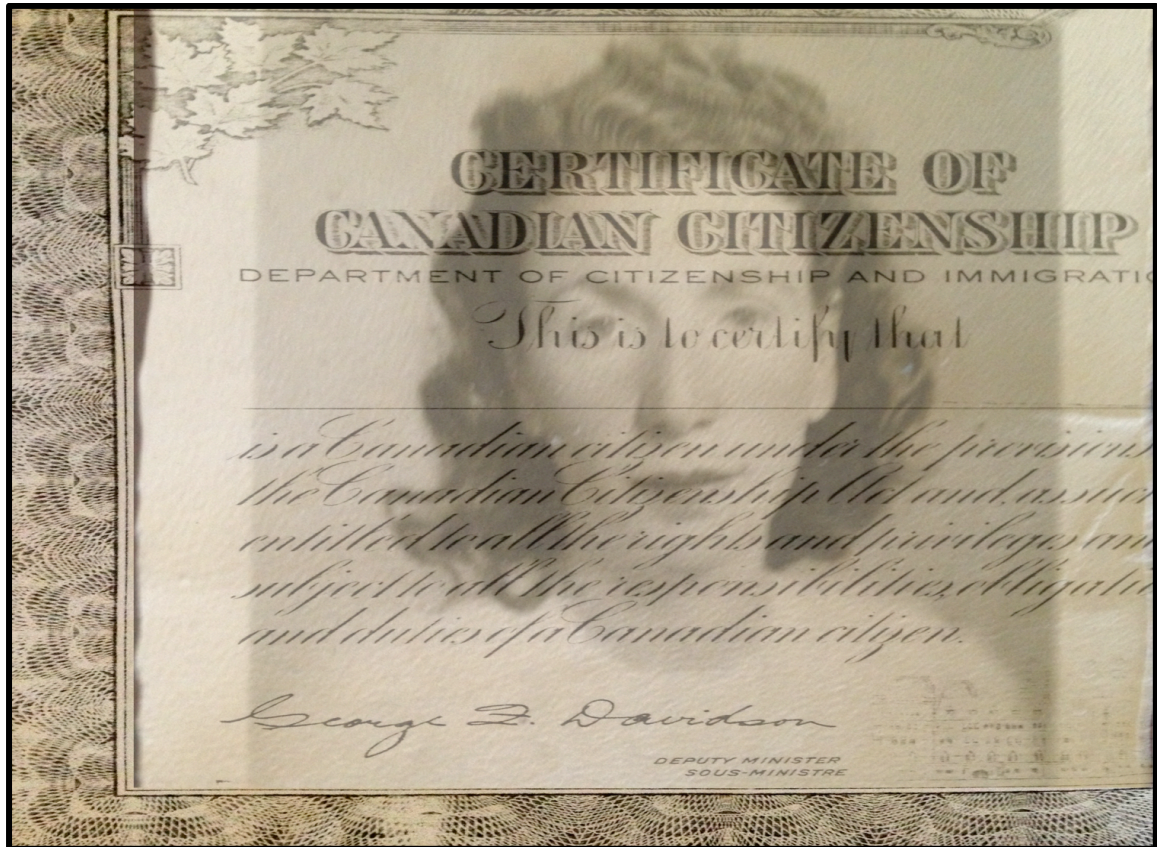 CERTIFICATE OF
CANADIAN CITIZENSHIP
DEPARTMENT OF CITIZENSHIP AND IMMIGRATIO
This is to certify that
is a Canadian citizen under the provisions
the Canadian Citizenship Act and, as such
entitled to all the rights and privileges an
subject to all the responsibilities, obligatio
and duties of a Canadian citizen.
George F. Davidson
DEPUTY MINISTER
SOUS-MINISTRE